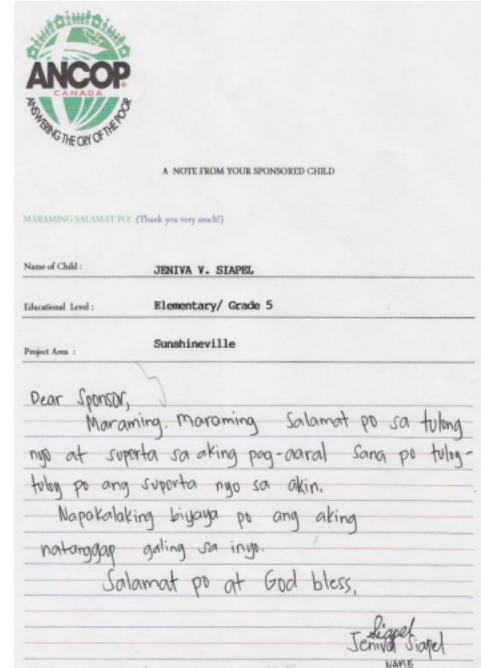 ANCOP
CANADA
ANSWERING THE CRY OF THE POOR
A NOTE FROM YOUR SPONSORED CHILD
MARAMING SALAMAT PO! (Thank you very much!)
Name of Child : JENIVA V. SIAPEL
Educational Level : Elementary/ Grade 5
Project Area : Sunshineville
Dear Sponsor,
Maraming. maraming Salamat po sa tulong
nyo at suporta sa aking pag-aaral Sana po tuloy-
tuloy po ang suporta nyo sa akin.
Napakalaking biyaya po ang aking
natanggap galing sa inyo.
Salamat po at God bless,
Siapel
Jeniva Siapel
NAME